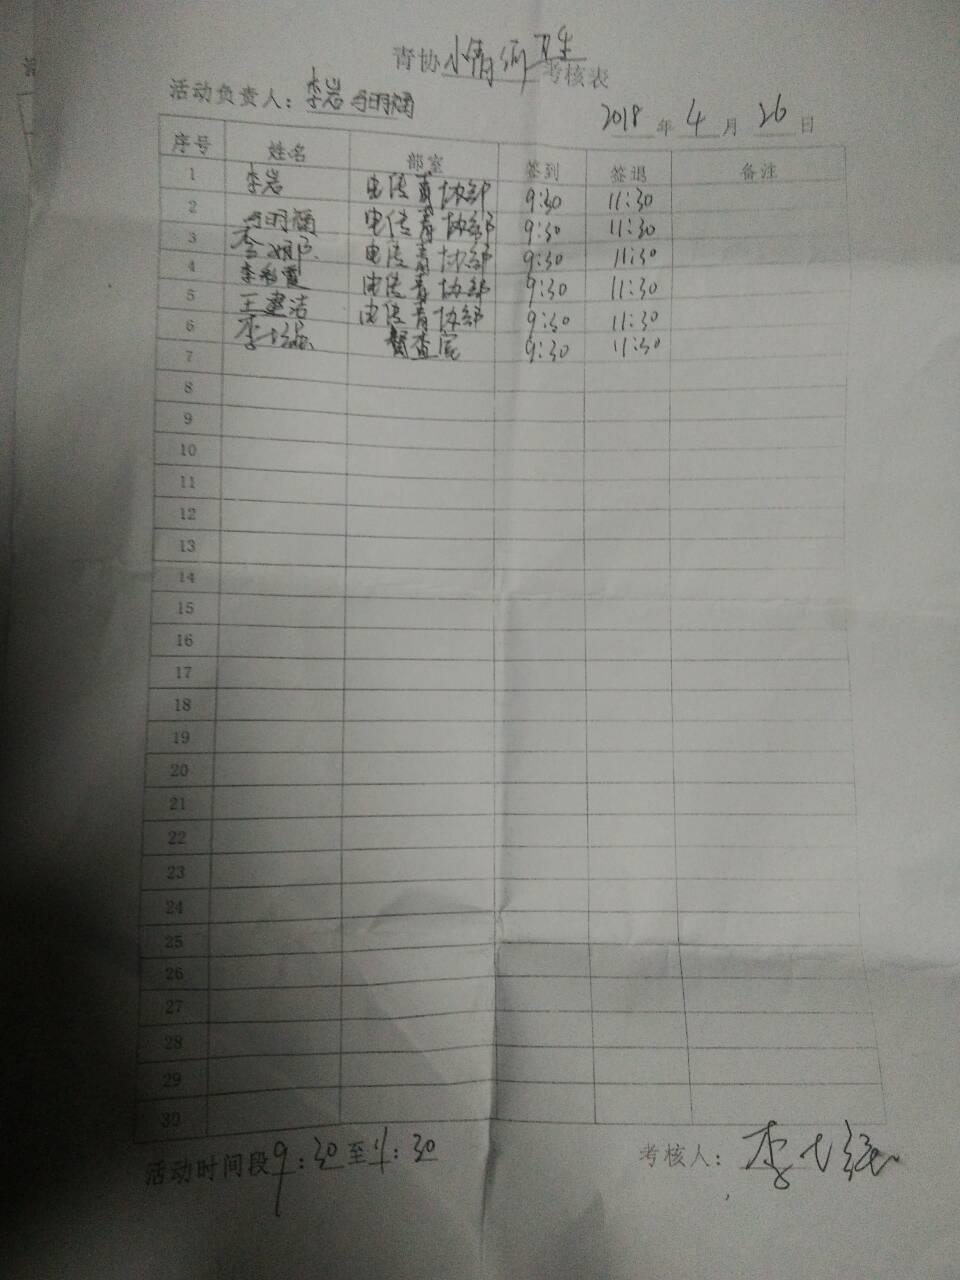 青协小倩街卫生考核表
活动负责人：李岩 马明嫡
2018年4月26日
序号 姓名 部室 签到 签退 备注
1 李岩 电传青协部 9:30 11:30
2 电传青协部 9:30 11:30
3 李 电传青协部 9:30 11:30
4 李彩霞 电传青协部 9:30 11:30
5 王建洁 电传青协部 9:30 11:30
6 李 督查室 9:30 11:30
7
8
9
10
11
12
13
14
15
16
17
18
19
20
21
22
23
24
25
26
27
28
29
30
活动时间段 9:30至11:30
考核人：李